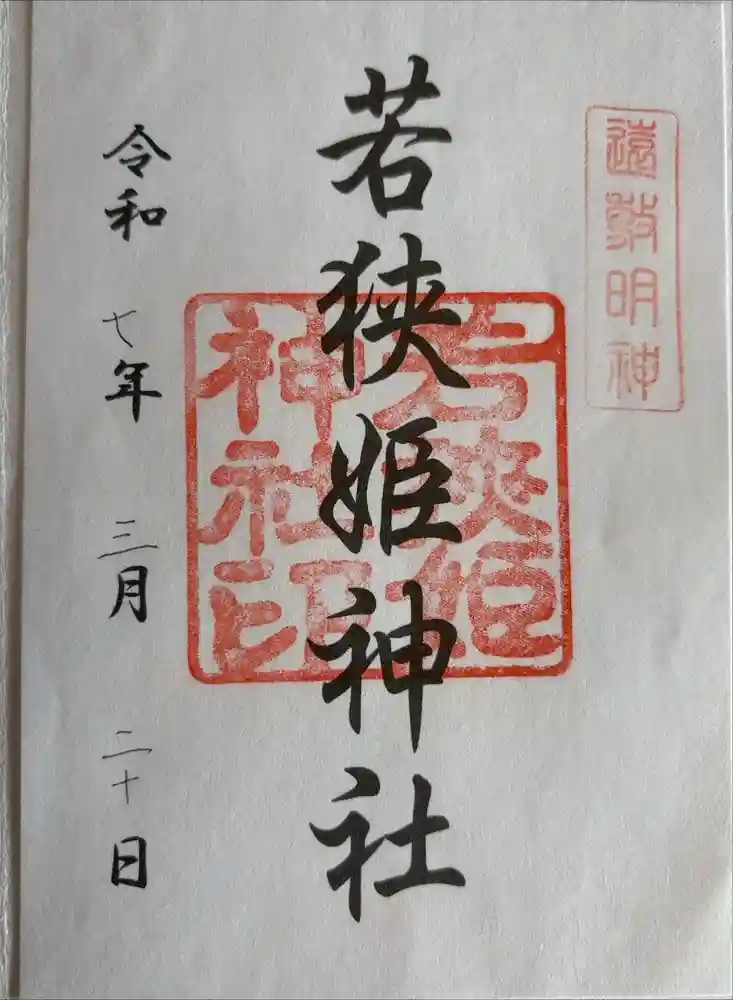 遠敷明神
若狭姫神社
若狭姫
神社印
令和 七年 三月 二十日